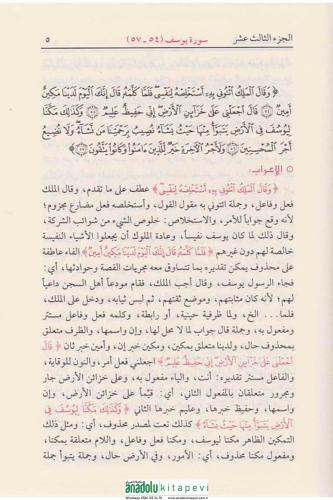 الجزء الثالث عشر سورة يوسف (٥٤ - ٥٧) ٥
﴿ وَقَالَ ٱلْمَلِكُ ٱئْتُونِي بِهِۦٓ أَسْتَخْلِصْهُ لِنَفْسِي فَلَمَّا كَلَّمَهُۥ قَالَ إِنَّكَ ٱلْيَوْمَ لَدَيْنَا مَكِينٌ
أَمِينٌ ﴿٥٤﴾ قَالَ ٱجْعَلْنِي عَلَىٰ خَزَآئِنِ ٱلْأَرْضِ إِنِّي حَفِيظٌ عَلِيمٌ ﴿٥٥﴾ وَكَذَٰلِكَ مَكَّنَّا
لِيُوسُفَ فِي ٱلْأَرْضِ يَتَبَوَّأُ مِنْهَا حَيْثُ يَشَآءُ نُصِيبُ بِرَحْمَتِنَا مَن نَّشَآءُ وَلَا نُضِيعُ
أَجْرَ ٱلْمُحْسِنِينَ ﴿٥٦﴾ وَلَأَجْرُ ٱلْآخِرَةِ خَيْرٌ لِّلَّذِينَ ءَامَنُوا وَكَانُوا يَتَّقُونَ ﴿٥٧﴾
○ الإعراب:
﴿ وَقَالَ ٱلْمَلِكُ ٱئْتُونِي بِهِۦٓ أَسْتَخْلِصْهُ لِنَفْسِي ﴾ عطف على ما تقدم، وقال الملك
فعل وفاعل، وجملة ائتوني به مقول القول، وأستخلصه فعل مضارع مجزوم؛
لأنه وقع جواباً للأمر، والاستخلاص: خلوص الشيء من شوائب الشركة،
وقال ذلك لما كان يوسف نفيساً، وعادة الملوك أن يجعلوا الأشياء النفيسة
خالصة لهم دون غيرهم ﴿ فَلَمَّا كَلَّمَهُ قَالَ إِنَّكَ ٱلْيَوْمَ لَدَيْنَا مَكِينٌ أَمِينٌ ﴾ الفاء عاطفة
على محذوف يمكن تقديره بما تتساوق معه مجريات القصة وحوادثها، أي:
فجاء الرسول يوسف، وقال أجب الملك، فقام مودعاً أهل السجن داعياً
لهم؛ لأنه كان مثابتهم، وموضع ثقتهم، ثم لبس ثيابه، ودخل على الملك،
فلما... الخ، ولما ظرفية حينية، أو رابطة، وكلمه فعل وفاعل مستتر
ومفعول به، وجملة قال جواب لما لا محل لها، وإن واسمها، والظرف متعلق
بمحذوف حال، ولدينا متعلق بمكين، ومكين خبر إن، وأمين خبر ثان ﴿ قَالَ
ٱجْعَلْنِي عَلَىٰ خَزَآئِنِ ٱلْأَرْضِ إِنِّي حَفِيظٌ عَلِيمٌ ﴾ اجعلني فعل أمر، والنون للوقاية،
والفاعل مستتر تقديره: أنت، والياء مفعول به، وعلى خزائن الأرض جار
ومجرور متعلقان بالمفعول الثاني، أي: قيّماً على خزائن الأرض، وإن
واسمها، وحفيظ خبرها، وعليم خبرها الثاني ﴿ وَكَذَٰلِكَ مَكَّنَّا لِيُوسُفَ فِي
ٱلْأَرْضِ يَتَبَوَّأُ مِنْهَا حَيْثُ يَشَآءُ ﴾ كذلك نعت لمصدر محذوف، أي: ومثل ذلك
التمكين الظاهر مكنا ليوسف، ومكنا فعل وفاعل، واللام متعلقة بمكنا،
ومفعول مكنا محذوف، أي: الأمور، وفي الأرض حال، وجملة يتبوأ جملة
anadolu kitapevi